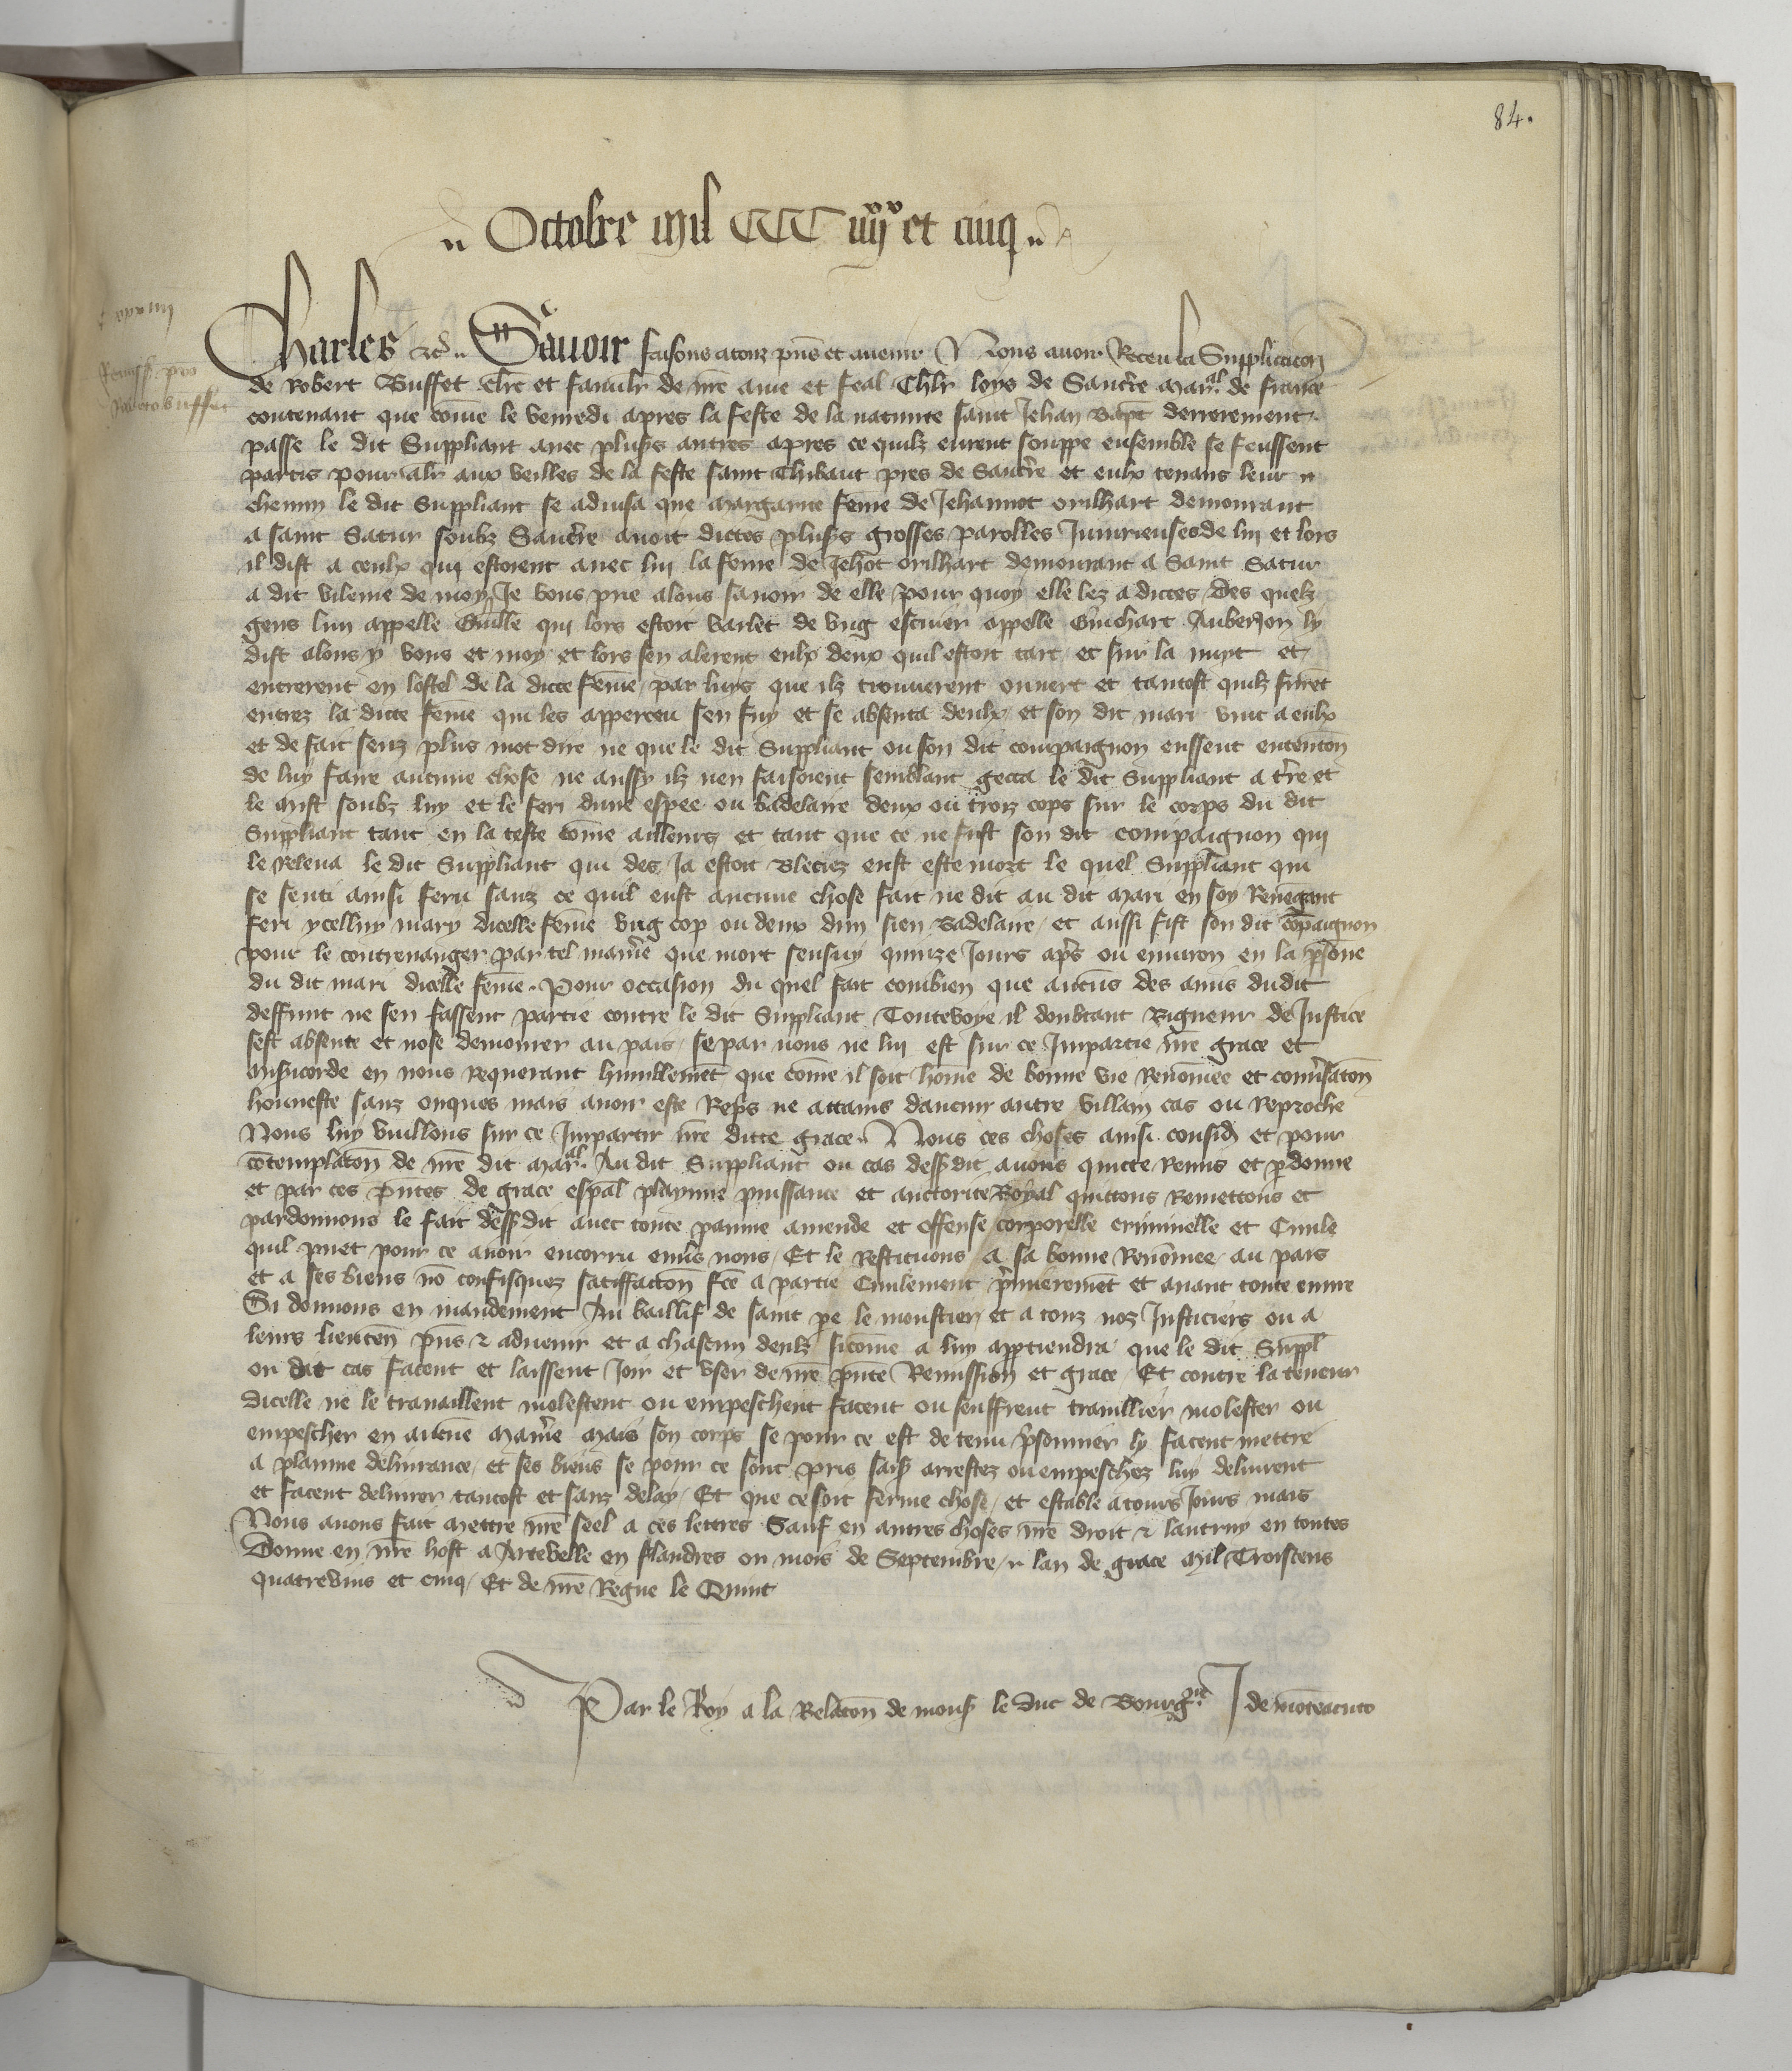 84.
Octobre mil CCC iiijxx et cinq
Charles etc. Sauoir faisons a touz pñs et auenir Nous auoir Receu la Supplicacion
de Robert Buffet clrc et famulr de nre ame et feal Chlr loys de Sancrre maral de france
contenant que comme le venredi apres la feste de la natiuite saint Jehan Bapt derrerement
passe le dit Suppliant auec plus's autres apres ce quilz eurent souppe ensemble se feussent
partis pour alr aux veilles de la feste saint Thibaut pres de Sancrre et eulx tenans leur
chemin le dit Suppliant se aduisa que Margarite feme de Jehannot orilhart demourant
a saint Satur soubz Sancrre auoit dictes plus's grosses parolles Iniurieuses de lui et lors
il dist a ceulx qui estoient auec lui la feme de Jehot orilhart demourant a Saint Satur
a dit vilenie de moy Je vous prie alons sauoir de elle pour quoy elle lez a dictes des quelz
gens lun appelle Guille qui lors estoit varlet de vng escuier appelle Guichart Auberjon ly
dist alons y vous et moy et lors sen alerent eulx deux quil estoit tart et sur la nuyt et
entrerent en lostel de la dicte feme par luys que ilz trouuerent ouuert et tantost quilz furet
entrez la dicte feme qui les apperceu sen fuy et se absenta deulx et son dit mari vint a eulx
et de fait senz plus mot dire ne que le dit Suppliant ou son dit compaignon eussent ententon
de luy faire aucune chose ne aussy ilz nen faisoient semblant getta le dit Suppliant a trre et
le mist soubz luy et le feri dune espee ou badelaire deux ou troiz cops sur le corps du dit
Suppliant tant en la teste come ailleurs et tant que ce ne fust son dit compaignon qui
le releua le dit Suppliant qui des ja estoit Bleciez eust este mort le quel Suppliant qui
se senti ainsi feru sanz ce quil eust aucune chose fait ne dit au dit mari en soy Reuegant
feri ycelluy mary dicelle feme vng cop ou deux dun sien Badelaire et aussi fist son dit copaignon
pour le contreuanger par tel maniere que mort sensuy quinze Jours aps ou enuiron en la psone
du dit mari dicelle feme. Pour occasion du quel fait combien que aucuns des amis dudit
deffunt ne sen fassent partie contre le dit Suppliant Touteuoye il doubtant Rigueur de Justice
sest absente et nose demourer au pais se par nous ne lui est sur ce Impartie nre grace et
misicorde en nous requerant humblemet que come il soit home de bonne vie Renomee et conusaton
honneste sanz onques mais auoir este Reps ne attains daucun autre villain cas ou Reproche
Nous luy vuillons sur ce Impartir nre ditte grace. Nous ces choses ainsi consid et pour
cotemplaton de nre dit maral Au dit Suppliant ou cas dessdit auons quicte Remis et pdonne
et par ces pntes de grace espal playnne puissance et auctorite Royal quittons Remettons et
pardonnons le fait dessdit auec toute painne amende et offense corporelle criminelle et Ciuile
quil puet pour ce auoir encorru enus nous Et le Restituons a sa bonne Renomee au pais
et a ses biens no confisquez satiffacton fce a partie Ciuilement premieremet et auant toute euure
Si donnons en mandement Au baillif de saint pe le moustier et a touz noz Justiciers ou a
leurs lieuten pns et aduenir et a chascun deulz sicome a luy apptiendra que le dit Suppl
ou dit cas facent et laissent Joir et vser de nre pnte Remission et grace Et contre la teneur
dicelle ne le trauaillent molestent ou empeschent facent ou seuffrent trauillier molester ou
empescher en aucue maniere Mais son corps se pour ce est detenu prisonnier ly facent mettre
a plainne deliurance et ses biens se pour ce sont pris saisis arrestez ou empeschez luy deliurent
et facent deliurer tantost et sanz delay Et que ce soit ferme chose et estable a tours Jours mais
Nous auons fait mettre nre seel a ces lettres Sauf en autres choses nre droit et lautruy en toutes
Donne en nre host a Artevelle en flandres ou mois de Septembre lan de grace mil Troiscens
quatrevins et cinq Et de nre Regne le Quint
Par le Roy a la Relaton de mons le duc de Bourgne J de moteacuto